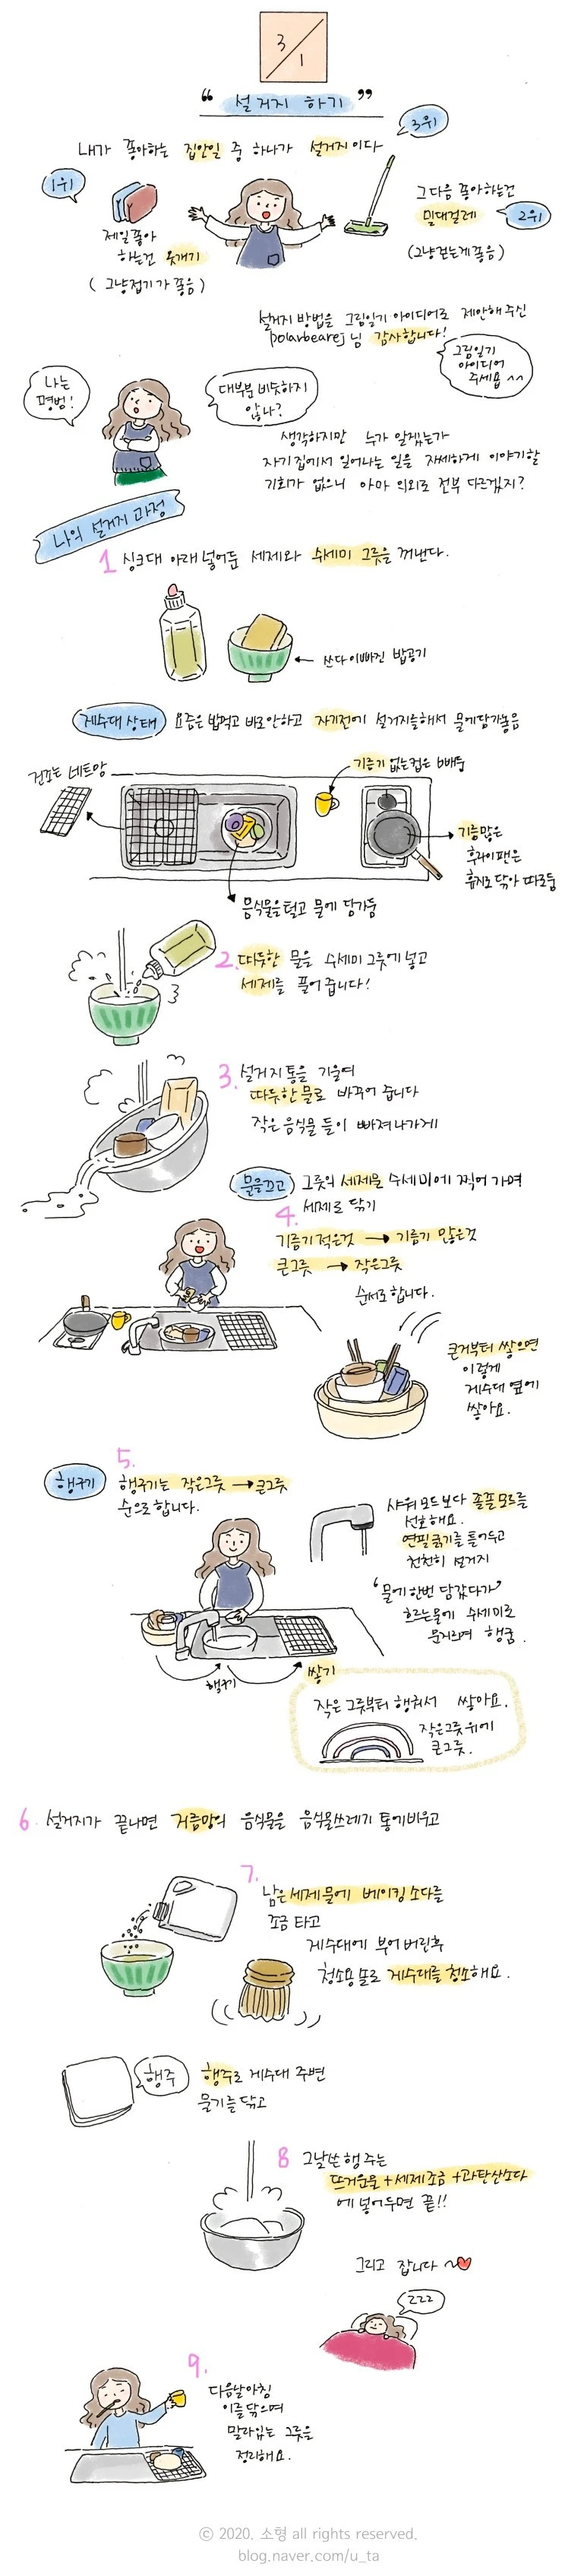 3/1
“ 설거지 하기 ”
내가 좋아하는 집안일 중 하나가 설거지이다
3위
1위
제일좋아
하는건 옷개기
( 그냥접기가 좋음 )
그다음 좋아하는건
밀대걸레
2위
(그냥걷는게 좋음)
설거지 방법을 그림일기 아이디어로 제안해 주신
polarbearej 님 감사합니다!
그림일기
아이디어
주세요 ^^
나는
평범!
대부분 비슷하지
않나?
생각하지만 누가 알겠는가
자기 집에서 일어나는 일을 자세하게 이야기할
기회가 없으니 아마 의외로 전부 다르겠지?
나의 설거지 과정
1 싱크대 아래 넣어둔 세제와 수세미 그릇을 꺼낸다.
쓰다 이빠진 밥공기
개수대 상태
요즘은 밥먹고 바로안하고 자기전에 설거지를해서 물에담가놓음
건조는 네트망
기름기 없는컵은 빼둠
기름많은
후라이팬은
휴지로 닦아 따로둠
음식물을 털고 물에 담가둠
2. 따뜻한 물을 수세미 그릇에 넣고
세제를 풀어 줍니다!
3. 설거지통을 기울여
따뜻한 물로 바꾸어 줍니다
작은 음식물 들이 빠져나가게
물을끄고
그릇의 세제를 수세미에 찍어 가며
세제로 닦기
4.
기름기적은것 → 기름기 많은것
큰그릇 → 작은그릇
순서로 합니다.
큰거부터 쌓으면
이렇게
개수대 옆에
쌓아요.
5.
헹구기
헹구기는 작은그릇 → 큰그릇
순으로 합니다.
샤워 모드 보다 졸졸 모드를
선호해요.
연필 굵기를 틀어두고
천천히 설거지
‘물에 한번 담갔다가’
흐르는물에 수세미로
문지르며 헹굼.
헹구기
쌓기
작은 그릇부터 헹궈서 쌓아요.
작은그릇 위에
큰그릇.
6. 설거지가 끝나면 거름망의 음식물을 음식물쓰레기 통에비우고
7.
남은 세제 물에 베이킹 소다를
조금 타고
개수대에 부어 버린후
청소용 솔로 개수대를 청소해요.
행주
행주로 개수대 주변
물기를 닦고
8 그날쓴 행주는
뜨거운물 + 세제 조금 + 과탄산소다
에 넣어두면 끝!!
그리고 잡니다 ~
ZZZ
9.
다음날아침
이를 닦으며
말라있는 그릇을
정리해요.
ⓒ 2020. 소형 all rights reserved.
blog.naver.com/u_ta